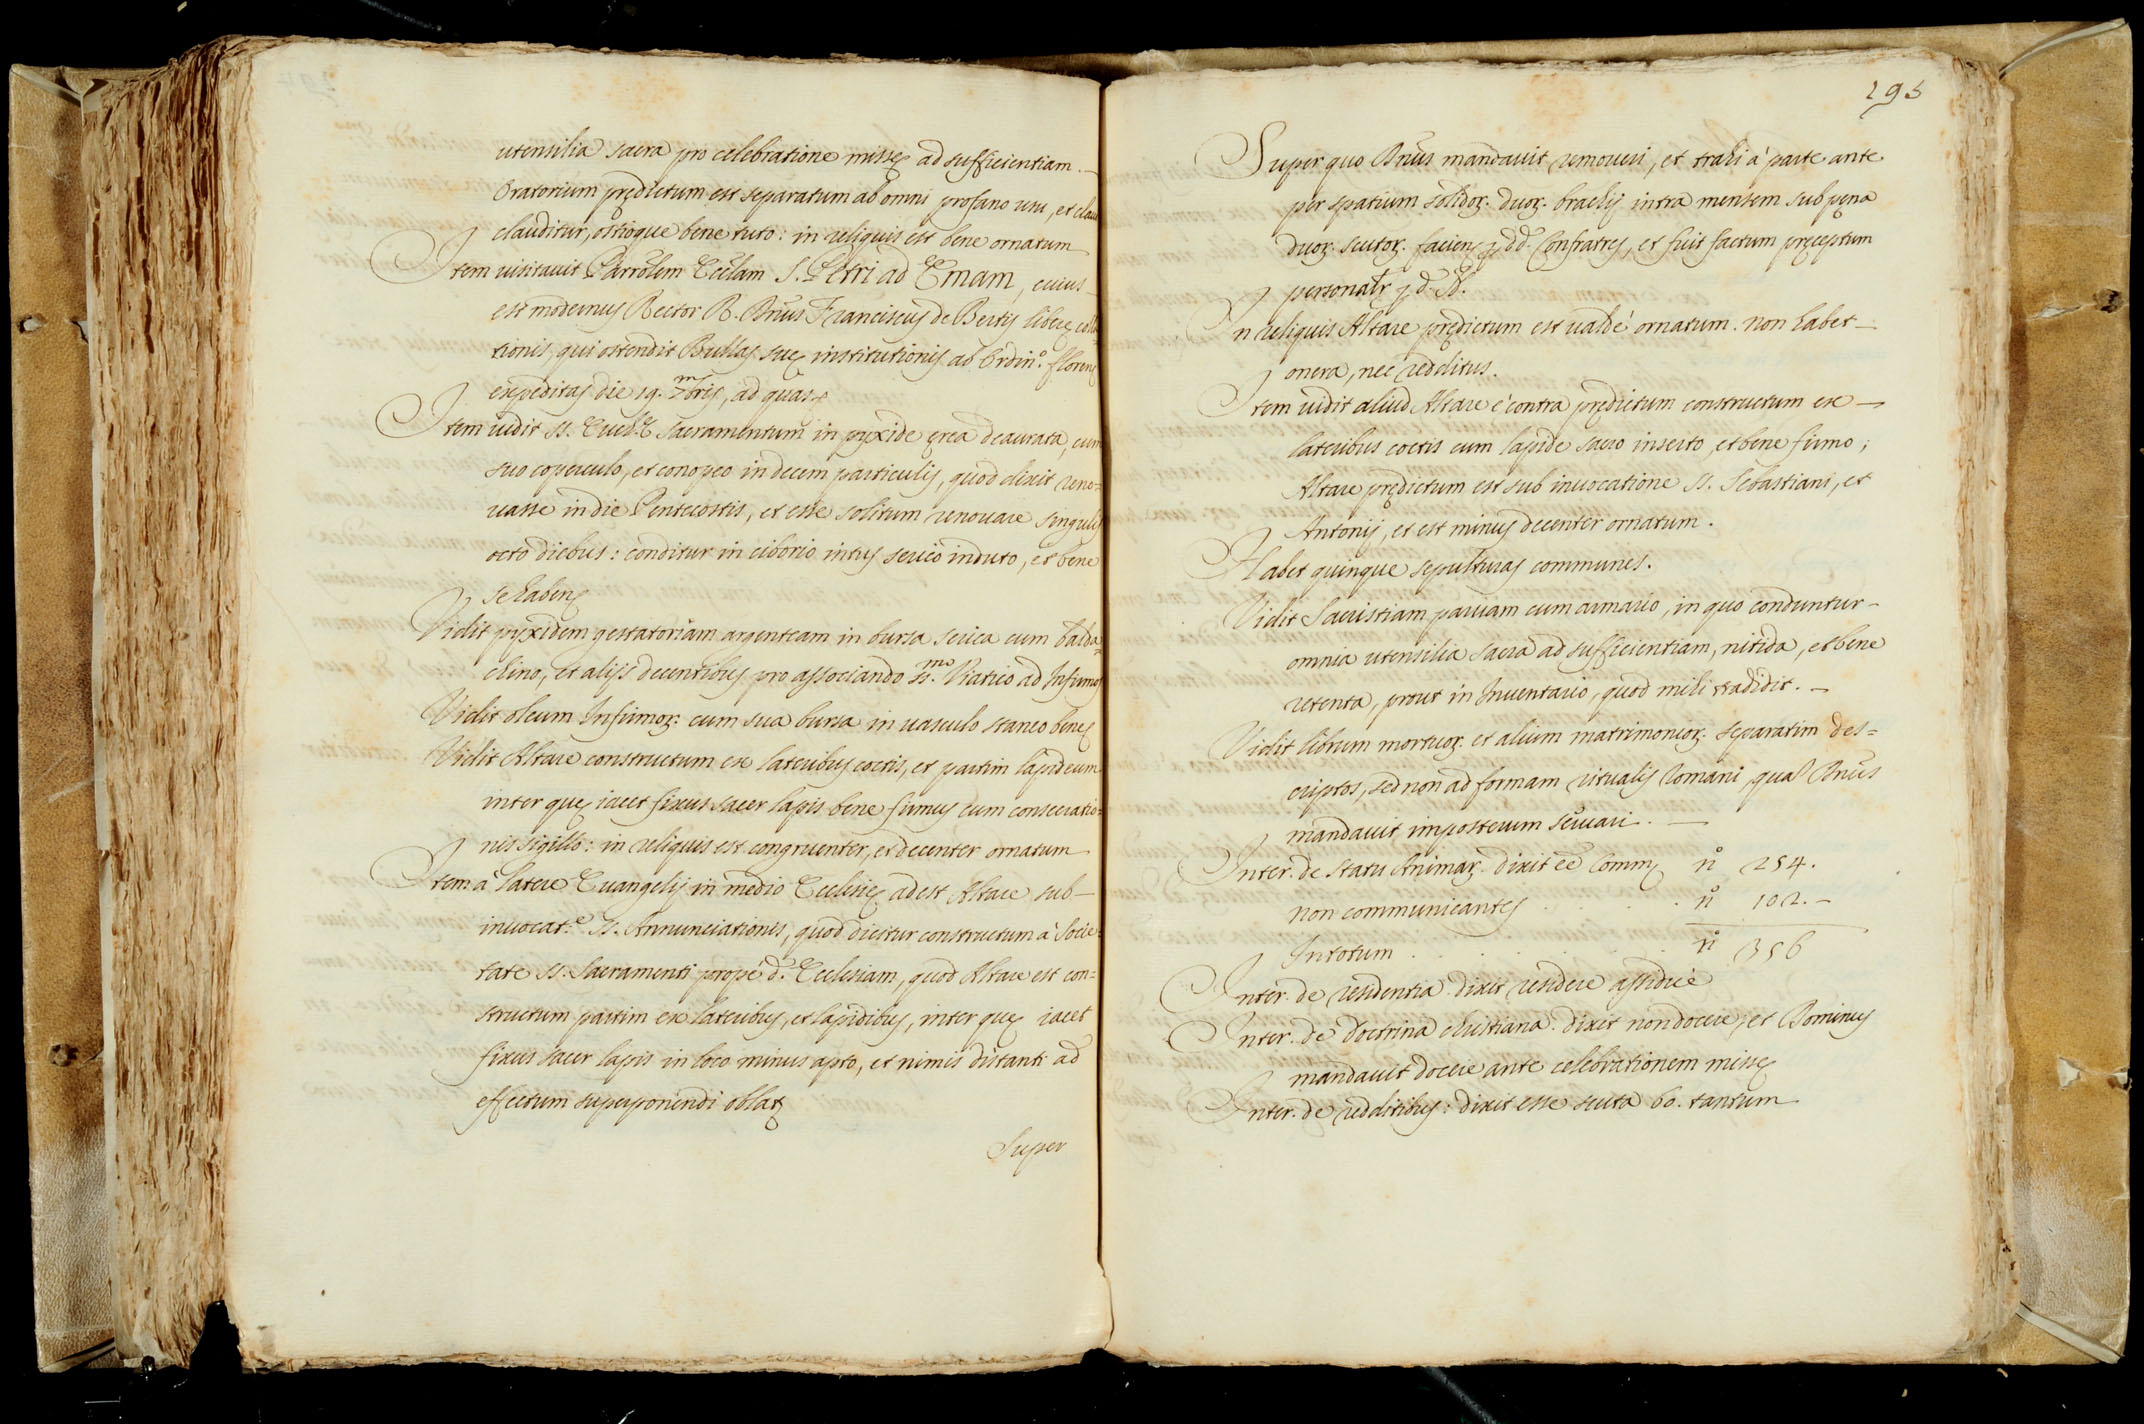 utensilia sacra pro celebratione missę ad sufficientiam.
Oratorium prędictum est separatum ab omni profano usu, et clau
clauditur, ostioque bene tuto: in reliquis est bene ornatum
Item visitauit Parrõlem Eccl̃am S. Petri ad Emam, cuius
est modernus Rector R. Dñus Franciscus de Bertis liberę colla
tionis, qui ostendit Bullas suę institutionis ab Ordin.º floren
expeditas die 19. 7mbris, ad quas
Item uidit SS. Euch.ę Sacramentum in pyxide ęrea deaurata, cum
suo coperculo, et conopeo in decem particulis, quod dixit reno=
uasse in die Pentecostis, et esse solitum renouare singulis
octo diebus: conditur in ciborio intus serico induto, et bene
se haben
Vidit pyxidem gestatoriam argenteam in bursa serica cum balda=
chino, et alijs decentibus pro associando SS.mo Viatico ad Infirmos
Vidit oleum Infirmor: cum sua bursa in uasculo staneo bene
Vidit Altare constructum ex lateribus coctis, et partim lapideum
inter quę iacet fixus sacer lapis bene firmus cum consecratio=
nis sigillo: in reliquis est congruenter, et decenter ornatum
Item à latere Euangelij in medio Ecclesię adest Altare sub
inuocat.e SS. Annunciationis, quod dicitur constructum à Socie=
tate SS. Sacramenti propè d. Ecclesiam, quod Altare est con=
structum partim ex lateribus, et lapidibus, inter quę iacet
fixus sacer lapis in loco minus apto, et nimis distanti ad
effectum superponendi oblat
Super
295
Super quo Dñus mandauit remoueri, et trahi à parte ante
per spatium solidor. duor. brachij intra mensem sub pęna
duor. scutor. facien p dd. Confratres, et fuit factum pręceptum
personalr p d.
In reliquis Altare prędictum est ualdè ornatum. non habet
onera, nec redditus.
Item uidit aliud Altare è contra prędictum constructum ex
lateribus coctis cum lapide sacro inserto, et bene firmo;
Altare prędictum est sub inuocatione SS. Sebastiani, et
Antonij, et est minus decenter ornatum.
Habet quinque sepulturas communes.
Vidit Sacristiam paruam cum armario, in quo conduntur
omnia utensilia sacra ad sufficientiam, nitida, et bene
retenta, prout in Inuentario, quod mihi tradidit.
Vidit librum mortuor. et alium matrimonior. separatim des=
criptos, sed non ad formam ritualis Romani, quã Dñus
mandauit imposterum seruari.
Inter. de statu Animar. dixit eẽ Comm nº 254.
non communicantes . . . . nº 102.
In totum . . . . . nº 356
Inter. de residentia. dixit residere assiduè
Inter. de doctrina christiana. dixit non docere, et Dominus
mandauit docere ante celebrationem missę
Inter. de redditibus: dixit esse scuta 60. tantum